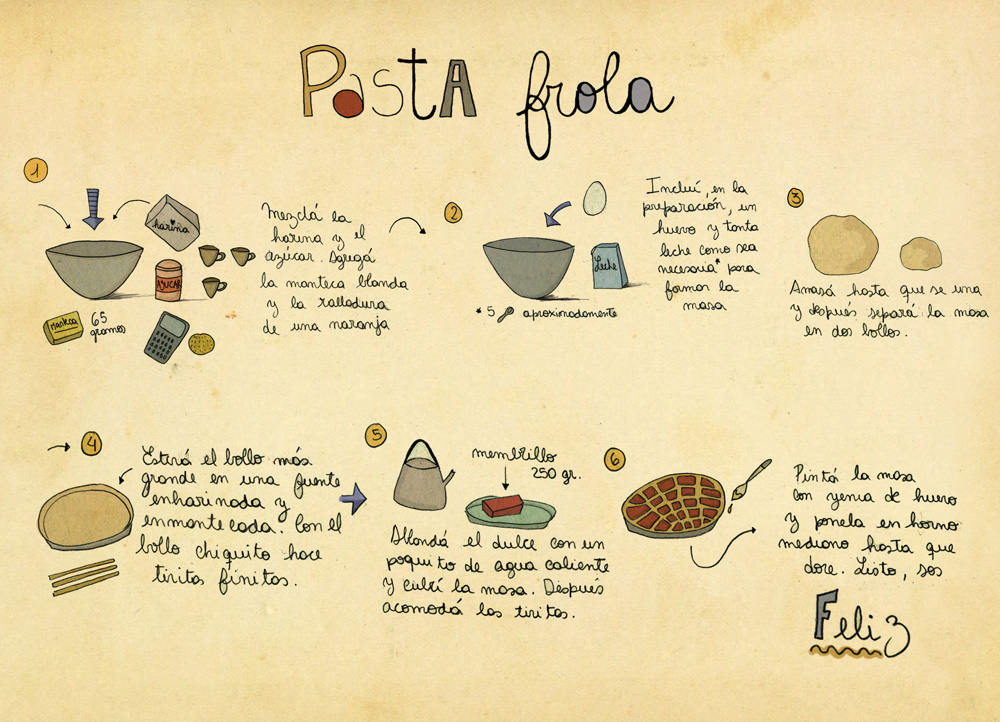 Pasta frola
1
harina
AZUCAR
Manteca
65
gramos
Mezclá la
harina y el
azúcar. Agregá
la manteca blanda
y la ralladura
de una naranja
2
Leche
* 5 aproximadamente
Incluí, en la
preparación, un
huevo y tanta
leche como sea
necesaria* para
formar la
masa
3
Amasá hasta que se una
y después separá la masa
en dos bollos.
4
Estirá el bollo más
grande en una fuente
enharinada y
enmantecada. Con el
bollo chiquito hace
tiritas finitas.
5
membrillo
250 gr.
Ablandá el dulce con un
poquito de agua caliente
y cubrí la masa. Después
acomodá las tiritas.
6
Pintá la masa
con yema de huevo
y ponela en horno
mediano hasta que
dore. Listo, sos
Feliz